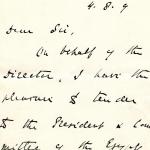 4.8.9
Dear Sir,
On behalf of the
Director, I have the
pleasure to tender
to the President & Com
mittee of the